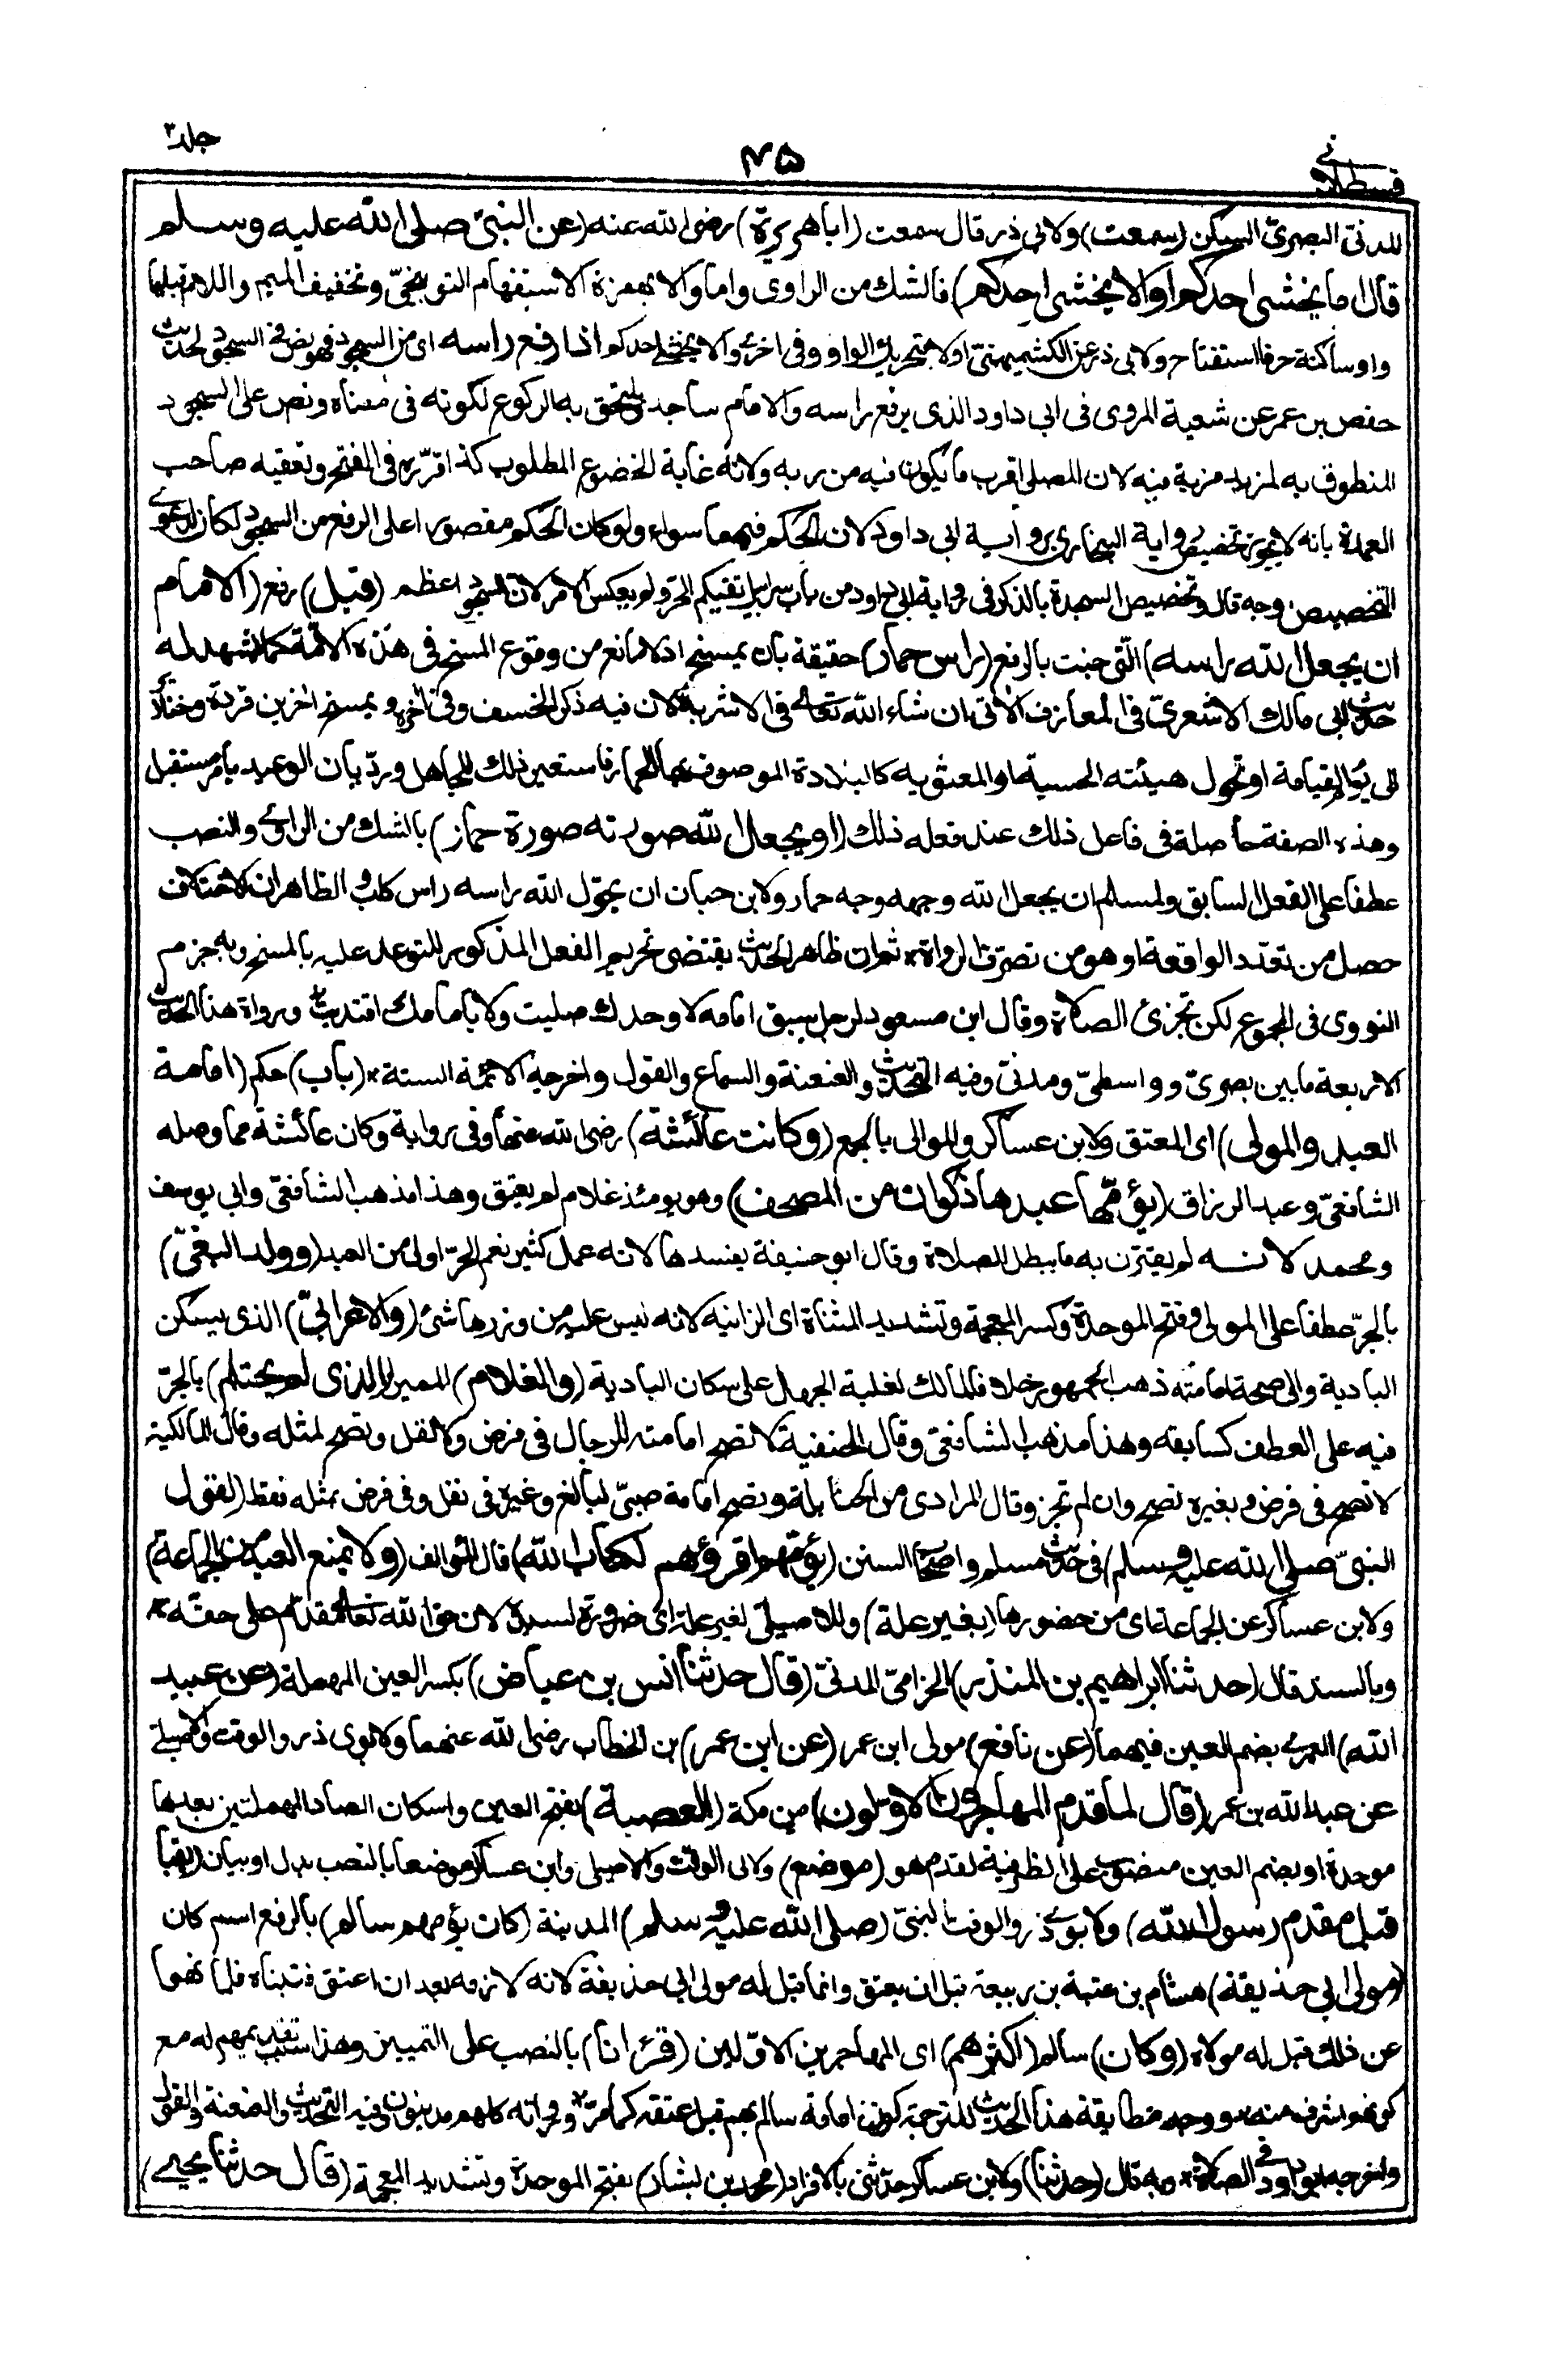 قسطلانی
۴۵
جلد۲
المدنیّ البصریّ السکن (سمعت) ولابی ذر قال سمعت (اباهریرة) رضی الله عنه (عن النبیّ صلی الله علیه وسلم
قال اما یخشی احدکم او الا یخشی احدکم) فالشك من الراوی واما والا بهمزة الاستفهام التوبیخیّ وتخفیف المیم واللام قبلها
واو ساکنة حرفا استفتاح ولابی ذر عن الکشمیهنیّ اولا بتحریك الواو وفی اخرے والا یخشے احدکم اذا رفع راسه ای من السجود فهو نص فی السجود لحدیث
حفص بن عمر عن شعبة المروی فی ابی داود الذی یرفع راسه والامام ساجد ویلتحق به الرکوع لکونه فی معناه ونص علی السجود
المنطوق به لمزید مزیة فیه لان المصلی اقرب ما یکون فیه من ربه ولانه غایة الخضوع المطلوب کذا قرّره فی الفتح وتعقبه صاحب
العمدة بانه لا یجوز تخصیص روایة البخاری بروایة ابی داود لان الحکم فیهما سواء ولو کان الحکم مقصورا علی الرفع من السجود لکان لدعوے
التخصیص وجه قال وتخصیص السجدة بالذکر فی روایة ابی داود من باب سرابیل تقیکم الحرّ ولم یعکس الامر لان السجود اعظم (قبل) رفع (الامام
ان یجعل الله راسه) التی جنت بالرفع (راس حمار) حقیقة بان یمسخ اذ لا مانع من وقوع المسخ فی هذه الامّة کما یشهد له
حدیث ابی مالك الاشعریّ فی المعازف الاٰتی ان شاء الله تعالے فی الاشربة لان فیه ذکر الخسف وفی اٰخره ویمسخ اٰخرین قردة وخنازیر
الی یوم القیامة او تحول هیئته الحسیة او المعنویة کالبلادة الموصوف بها الحمار فاستعیر ذلك للجاهل وردّ بان الوعید بامر مستقبل
وهذه الصفة حاصلة فی فاعل ذلك عند فعله ذلك (او یجعل الله صورته صورة حمار) بالشك من الراوے والنصب
عطفا علی الفعل السابق ولمسلم ان یجعل الله وجهه وجه حمار ولابن حبان ان یحوّل الله راسه راس کلب والظاهر ان الاختلاف
حصل من تعدّد الواقعة او هو من تصرّف الرواة * ثم ان ظاهر الحدیث یقتضی تحریم الفعل المذکور للتوعد علیه بالمسخ وبه جزم
النووی فی المجموع لکن تجزئ الصلاة وقال ابن مسعود لرجل سبق امامه لا وحدك صلیت ولا بامامك اقتدیت * ورواة هذا الحدیث
الاربعة ما بین بصریّ وواسطیّ ومدنیّ وفیه التحدیث والعنعنة والسماع والقول واخرجه الائمة الستة * (باب) حکم (امامة
العبد والمولی) ای المعتق ولابن عساکر والموالی بالجمع (وکانت عائشة) رضی الله عنها وفی روایة وکان عائشة مما وصله
الشافعیّ وعبد الرزاق (یؤمّها عبدها ذکوان من المصحف) وهو یومئذ غلام لم یعتق وهذا مذهب الشافعیّ وابی یوسف
ومحمد لانه لم یقترن به ما یبطل الصلاة وقال ابو حنیفة یفسدها لانه عمل کثیر نعم الحرّ اولی من العبد (وولد البغیّ)
بالجرّ عطفا علی المولی وفتح الموحدة وکسر المعجمة وتشدید المثناة ای الزانیة لانه لیس علیه من وزرها شئ (والاعرابیّ) الذی یسکن
البادیة والی صحة امامته ذهب الجمهور خلافا لمالك لغلبة الجهل علی سکان البادیة (والغلام) الممیز (الذی لم یحتلم) بالجرّ
فیه علی العطف کسابقه وهذا مذهب الشافعیّ وقال الحنفیة لا تصح امامته للرجال فی فرض ولا نفل وتصح لمثله وقال المالکیة
لا تصح فی فرض وبغیره تصح وان لم تجز وقال المرادی من الحنابلة وتصح امامة صبیّ لبالغ وغیره فی نفل وفی فرض بمثله فقط (لقول
النبیّ صلی الله علیه وسلم) فی حدیث مسلم واصحاب السنن (یؤمّهم اقرؤهم لکتاب الله) قال المؤلف (ولا یمنع العبد من الجماعة)
ولابن عساکر عن الجماعة ای من حضورها (بغیر علة) وللاصیلیّ لغیر علة ای ضرورة لسیده لان حق الله تعالے مقدّم علی حقه *
وبالسند قال (حدثنا ابراهیم بن المنذر) الحزامیّ المدنیّ (قال حدثنا انس بن عیاض) بکسر العین المهملة (عن عبید
الله) العمرے بضم العین فیهما (عن نافع) مولی ابن عمر (عن ابن عمر) بن الخطاب رضی الله عنهما ولابوی ذر والوقت والاصیلے
عن عبد الله بن عمر (قال لما قدم المهاجرون الاوّلون) من مکة (العصبة) بفتح العین واسکان الصاد المهملتین بعدها
موحدة او بضم العین منصوب علی الظرفیة لقدم هو (موضع) ولابی الوقت والاصیلی وابن عساکر موضعا بالنصب بدل او بیان (بقبا
قبل مقدم رسول الله) ولابوے ذر والوقت النبیّ (صلی الله علیه وسلم) المدینة (کان یؤمهم سالم) بالرفع اسم کان
(مولی ابی حذیفة) هشام بن عتبة بن ربیعة قبل ان یعتق وانما قیل له مولی ابی حذیفة لانه لازمه بعد ان اعتق فتبناه فلما نهوا
عن ذلك قیل له مولاه (وکان) سالم (اکثرهم) ای المهاجرین الاوّلین (قرٰانا) بالنصب علی التمییز وهذا سبب تقدیمهم له مع
کونهم اشرف منه * ووجه مطابقة هذا الحدیث للترجمة کون امامة سالم بهم قبل عتقه کما مرّ * ورواته کلهم مدنیون وفیه التحدیث والعنعنة والقول
واخرجه ابو داود فی الصلاة * وبه قال (حدثنا) ولابن عساکر حدّثنی بالافراد (محمد بن بشار) بفتح الموحدة وتشدید المعجمة (قال حدثنا یحیے)